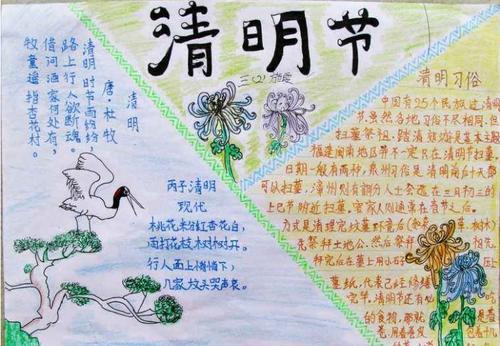 清明节
三(2)
清明
唐·杜牧
清明时节雨纷纷，
路上行人欲断魂。
借问酒家何处有，
牧童遥指杏花村。
丙子清明
现代
桃花米红杏花白，
雨打花枝树树开。
行人面上悄悄下，
几家坟头哭声哀。
清明习俗
中国有25个民族过清明
节，虽然各地习俗不尽相同，但
扫墓祭祖、踏清郊游是基本主题
福建闽南地区并不一定只在清明节扫墓
日期一般有两种，泉州习俗是清明前后十天都
可以扫墓，漳州则有部分人士会选在三月初三的
上巳节附近扫墓。客家人则通常在春节之后。
为此是清理完坟墓环境后
先祭拜土地公，然后祭拜
拜完后在墓上用小石
墓纸，代表已经修缮
完毕。清明节还有
的食物，那就